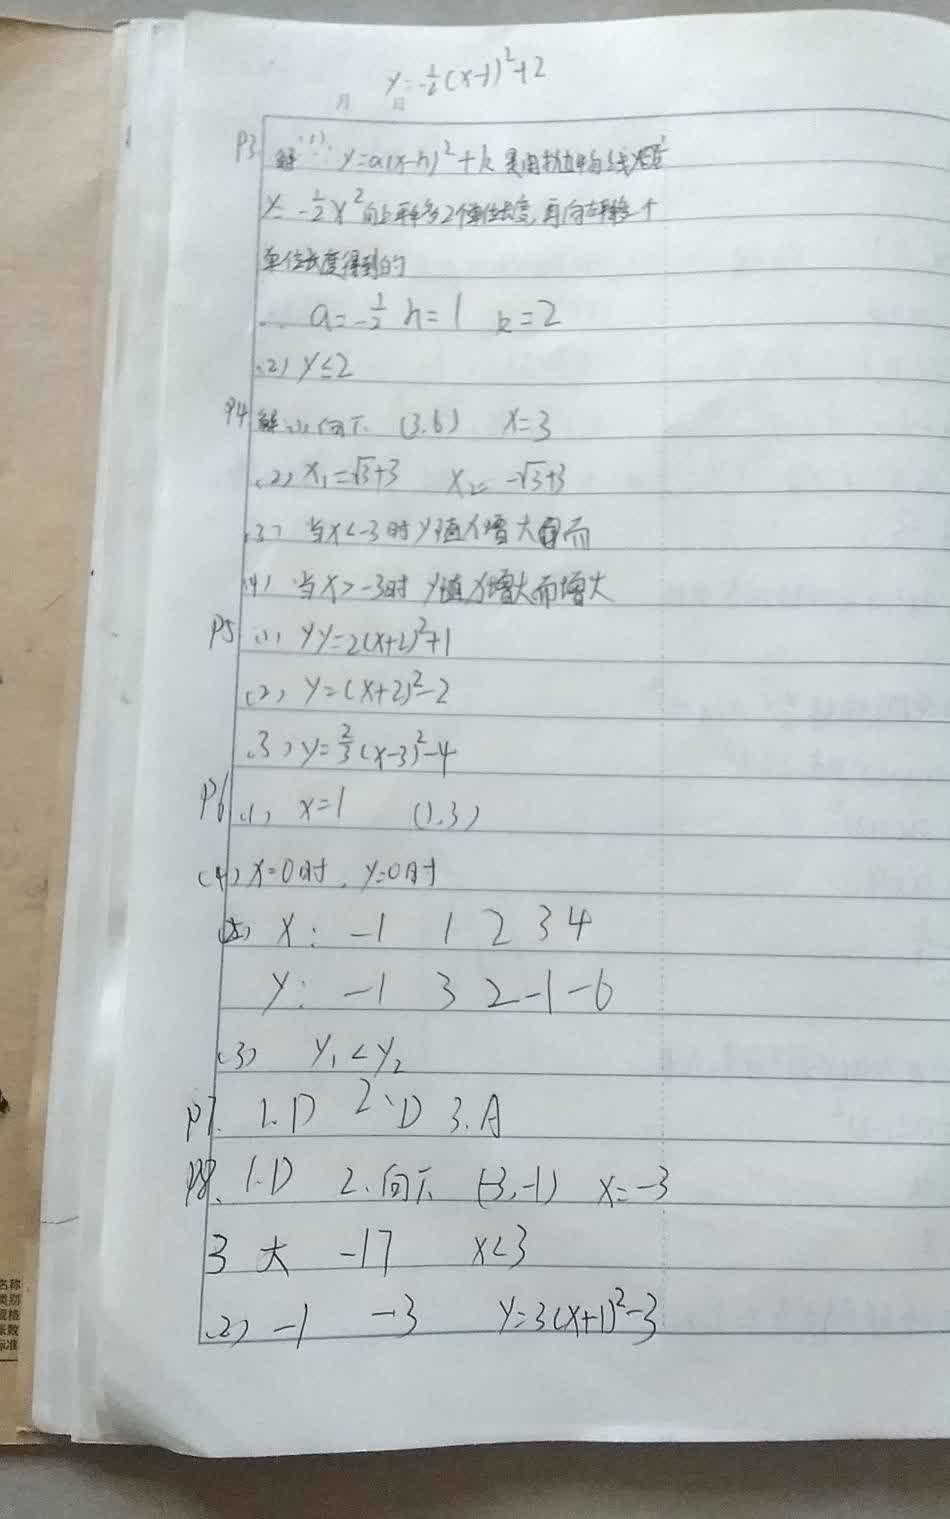 y=-½(x-1)²+2
月 日
P3 解(1)∵ y=a(x-h)²+k 是由抛
y=-½x²向上平移2个单位长度,再向右平移个
单位长度得到的
∴ a=-½ h=1 k=2
(2) y≤2
P4 解:(1) 向下 (3.6) x=3
(2) x₁=√3+3 x₂=-√3+3
(3) 当x<-3时y值x增大而
(4) 当x>-3时 y值x增大而增大
P5 (1) y y=2(x+2)²+1
(2) y=(x+2)²-2
(3) y=⅔(x-3)²-4
P6 (1) x=1 (1.3)
(4) x=0时, y=0时
(2) x: -1 1 2 3 4
y: -1 3 2 -1 -6
(3) y₁<y₂
P7. 1.D 2、D 3.A
P8. 1.D 2.向下 (-3,-1) x=-3
3 大 -17 x<3
(2) -1 -3 y=3(x+1)²-3
名称
类别
规格
张数
标准